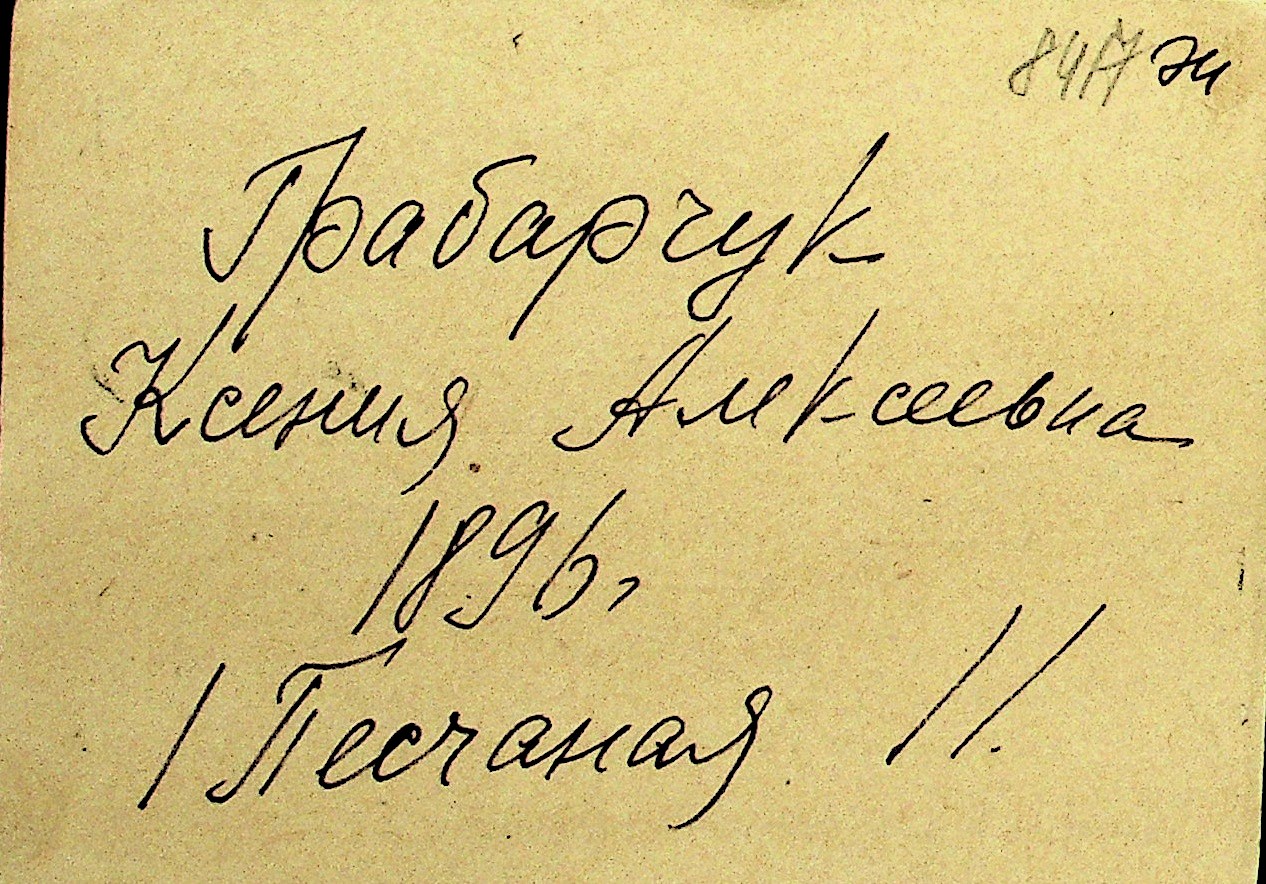 8417 эи
Грабарчук
Ксения Алексеевна
1896,
1 Песчаная 11.